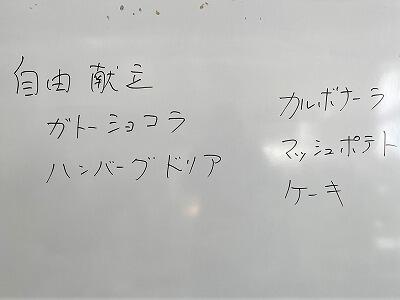 自由献立
ガトーショコラ
ハンバーグドリア
カルボナーラ
マッシュポテト
ケーキ